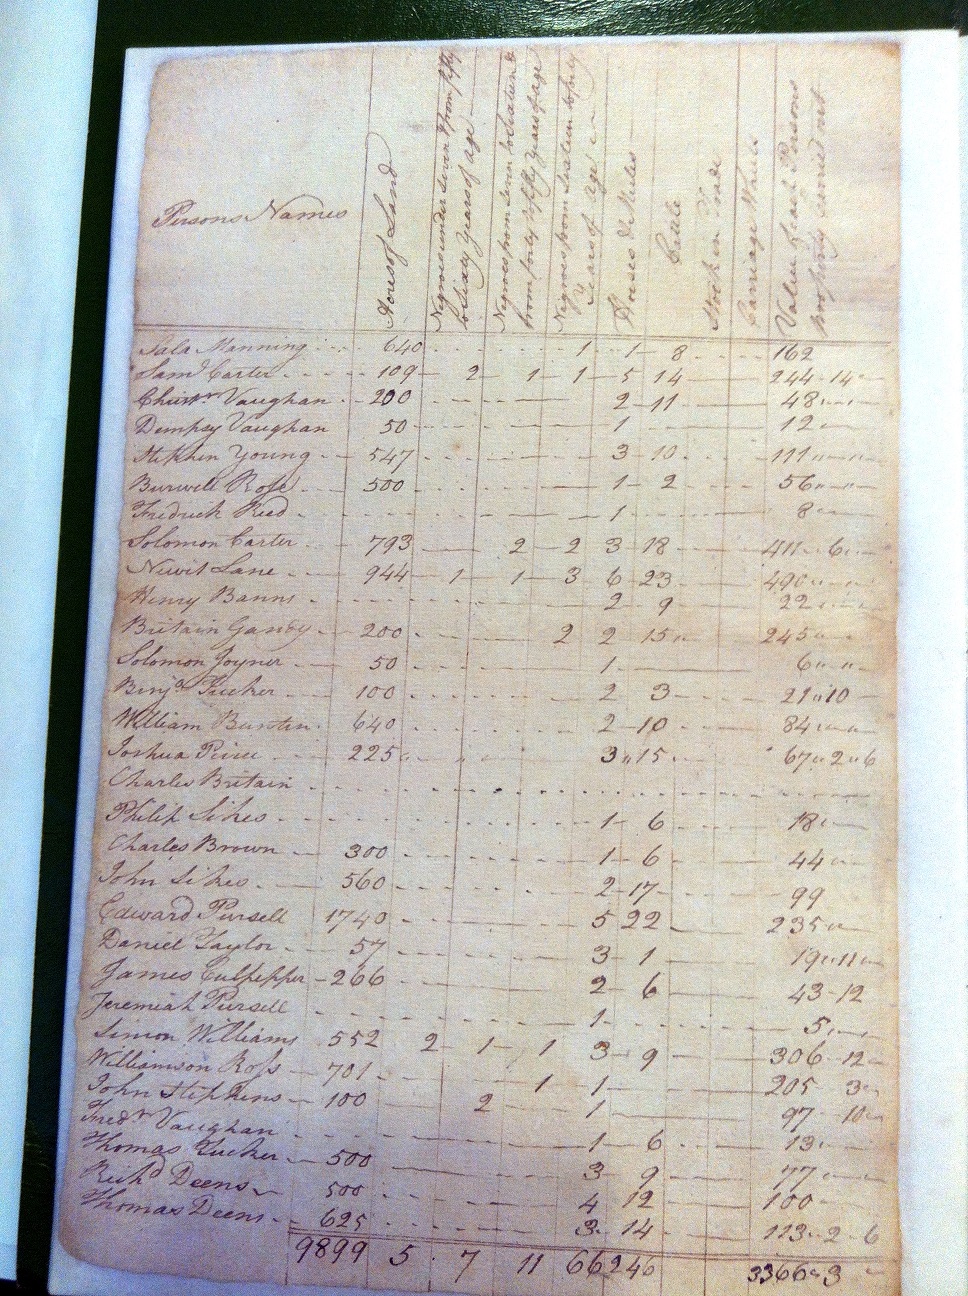 Persons Names
Acres of Land
Negroes under seven & from fifty to Sixty Years of age
Negroes from seven to sixteen & from forty to fifty Years of age
Negroes from sixteen to forty Years of Age
Horses & Mules
Cattle
Stock in Trade
Carriage Wheels
Value of each Persons property carried out
Sala Manning 640 1 1 8 162
Saml Carter 109 2 1 1 5 14 244 14
Christr Vaughan 200 2 11 48
Dempsy Vaughan 50 1 12
Stephen Young 547 3 10 111
Burwell Rose 500 1 2 56
Fredrick Reed 1 8
Solomon Carter 793 2 2 3 18 411 6
Newit Lane 944 1 1 3 6 23 490
Henry Banns 2 9 22
Britain Ganby 200 2 2 15 245
Solomon Joyner 50 1 6
Benja Tucker 100 2 3 21 10
William Buntin 640 2 10 84
Joshua Peirce 225 3 15 67 2 6
Charles Britain
Philip Sikes 1 6 18
Charles Brown 300 1 6 44
John Sikes 560 2 17 99
Edward Pursell 1740 5 22 235
Daniel Taylor 57 3 1 19 11
James Culpepper 266 2 6 43 12
Jeremiah Pursell 1 5
Simon Williams 552 2 1 1 3 9 306 12
Williamson Ross 701 1 1 205 3
John Stephens 100 2 1 97 10
Fredk Vaughan 1 6 13
Thomas Tucker 500 3 9 77
Richd Deens 500 4 12 100
Thomas Deens 625 3 14 113 2 6
9899 5 7 11 66 246 3366 3